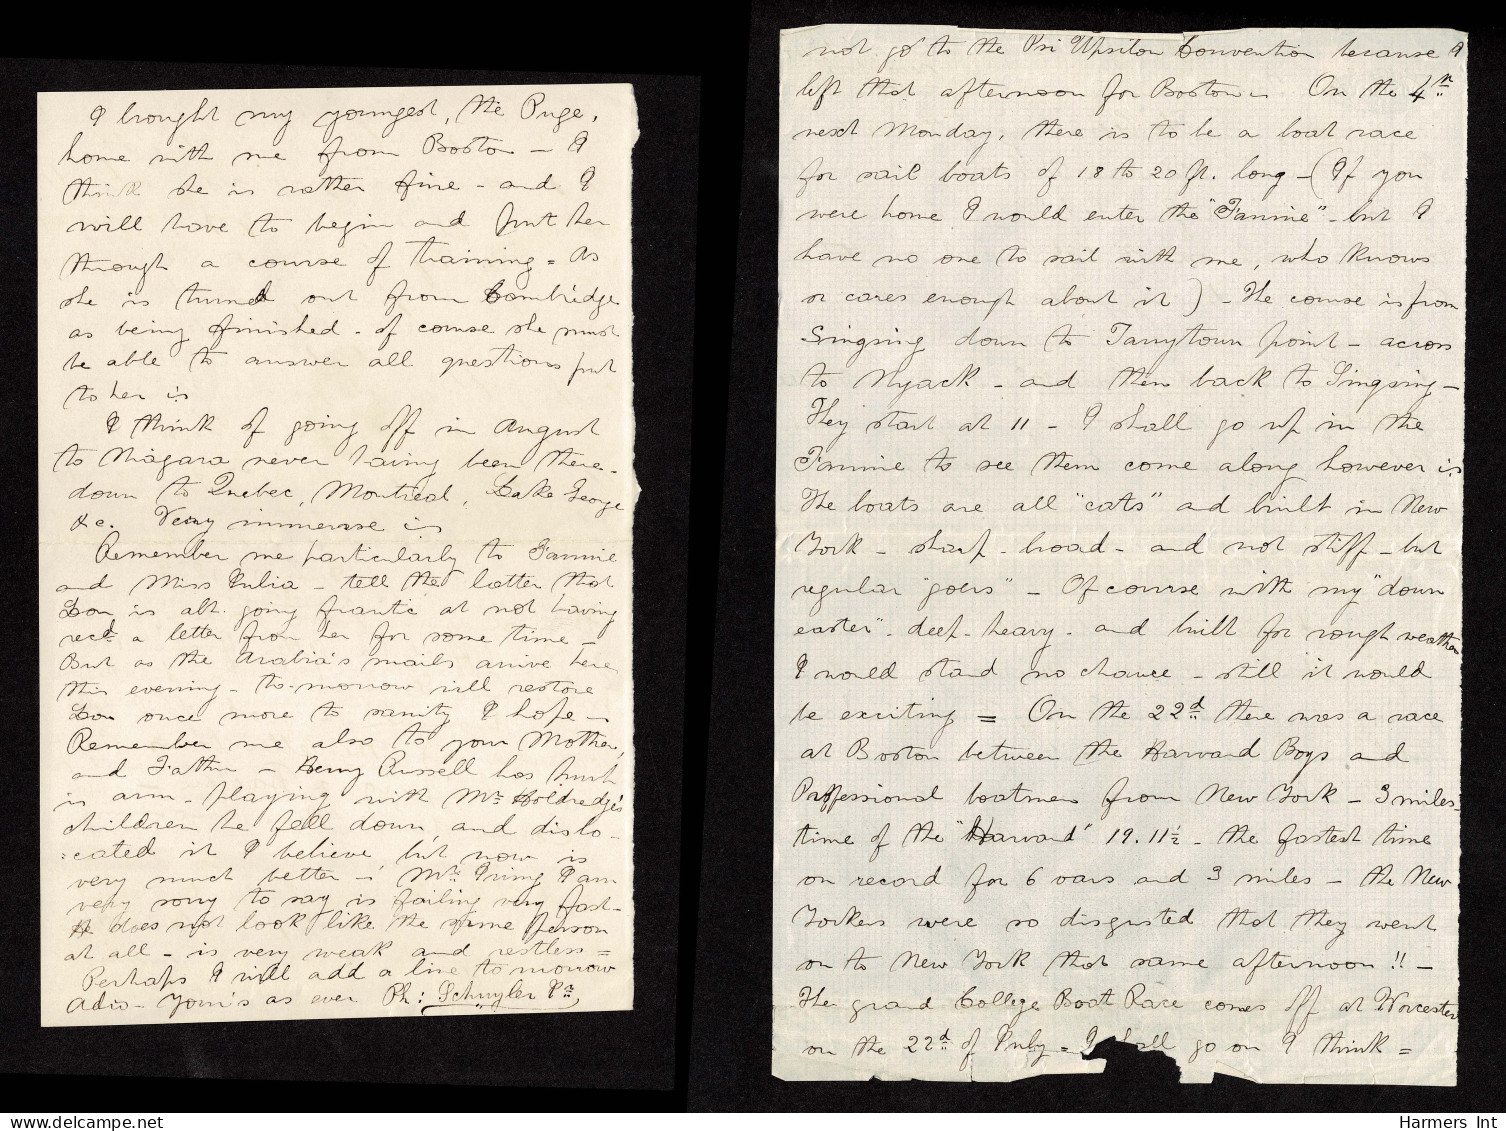 I brought my youngest, the Puge,
home with me from Boston – I
think she is rather fine – and I
will have to begin and put her
through a course of training = As
she is turned out from Cambridge
as being finished – of course she must
be able to answer all questions put
to her is
I think of going off in August
to Niagara never having been there –
down to Quebec, Montreal, Lake George
&c. Very immense is
Remember me particularly to Fannie
and Miss Julia – tell the latter that
Lou is abt. going frantic at not having
recd. a letter from her for some time –
But as the Arabia's mails arrive here
this evening – to-morrow will restore
Lou once more to sanity I hope –
Remember me also to your Mother,
and Father – Henry Russell has hurt
is arm – playing with Mr. Holdredge's
children he fell down, and dislo-
:cated it I believe, but now is
very much better – Mr. Irving I am
very sorry to say is failing very fast –
He does not look like the same person
at all – is very weak and restless =
Perhaps I will add a line to morrow
Adio – Your's as ever Ph: Schuyler Jr.
not go to the Psi Upsilon Convention because I
left that afternoon for Boston – On the 4th
next Monday, there is to be a boat race
for sail boats of 18 to 20 ft. long – (If you
were home I would enter the "Fannie" – but I
have no one to sail with me, who knows
or cares enough about it) – The course is from
Singsing down to Tarrytown point – across
to Nyack – and then back to Singsing –
They start at 11 – I shall go up in the
Fannie to see them come along however is
The boats are all "cats" and built in New
York – sharp – broad – and not stiff – but
regular "goers" – Of course with my "down
easter" – deep – heavy – and built for rough weather
I would stand no chance – still it would
be exciting = On the 22d there was a race
at Boston between the Harvard Boys and
Proffessional boatmen from New York – 3 miles
time of the "Harvard" 19.11½ – the fastest time
on record for 6 oars and 3 miles – the New
Yorkers were so disgusted that they went
on to New York that same afternoon !! –
The grand College Boat Race comes off at Worcester
on the 22d of July = I shall go on I think =
www.delcampe.net
Harmers Int